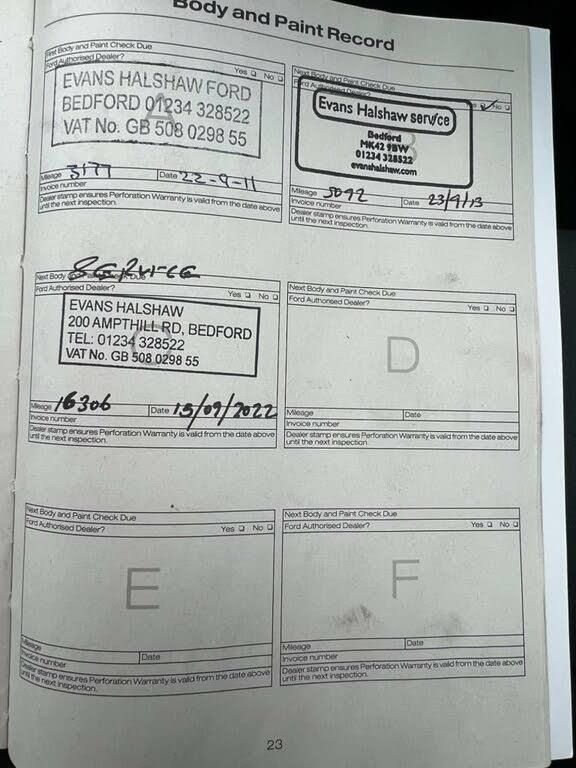 Body and Paint Record
First Body and Paint Check Due
Ford Authorised Dealer?
Yes No
A
EVANS HALSHAW FORD
BEDFORD 01234 328522
VAT No. GB 508 0298 55
Mileage 3177 Date 22-9-11
Invoice number
Dealer stamp ensures Perforation Warranty is valid from the date above
until the next inspection.
Next Body and Paint Check Due
Ford Authorised Dealer?
No
B
Evans Halshaw service
Bedford
MK42 9BW
01234 328522
evanshalshaw.com
Mileage 5092 Date 23/9/13
Invoice number
Dealer stamp ensures Perforation Warranty is valid from the date above
until the next inspection.
SERVICE
Next Body and Paint Check Due
Ford Authorised Dealer?
Yes No
C
EVANS HALSHAW
200 AMPTHILL RD, BEDFORD
TEL: 01234 328522
VAT No. GB 508 0298 55
Mileage 16306 Date 15/09/2022
Invoice number
Dealer stamp ensures Perforation Warranty is valid from the date above
until the next inspection.
Next Body and Paint Check Due
Ford Authorised Dealer?
Yes No
D
Mileage Date
Invoice number
Dealer stamp ensures Perforation Warranty is valid from the date above
until the next inspection.
Next Body and Paint Check Due
Ford Authorised Dealer?
Yes No
E
Mileage Date
Invoice number
Dealer stamp ensures Perforation Warranty is valid from the date above
until the next inspection.
Next Body and Paint Check Due
Ford Authorised Dealer?
Yes No
F
Mileage Date
Invoice number
Dealer stamp ensures Perforation Warranty is valid from the date above
until the next inspection.
23